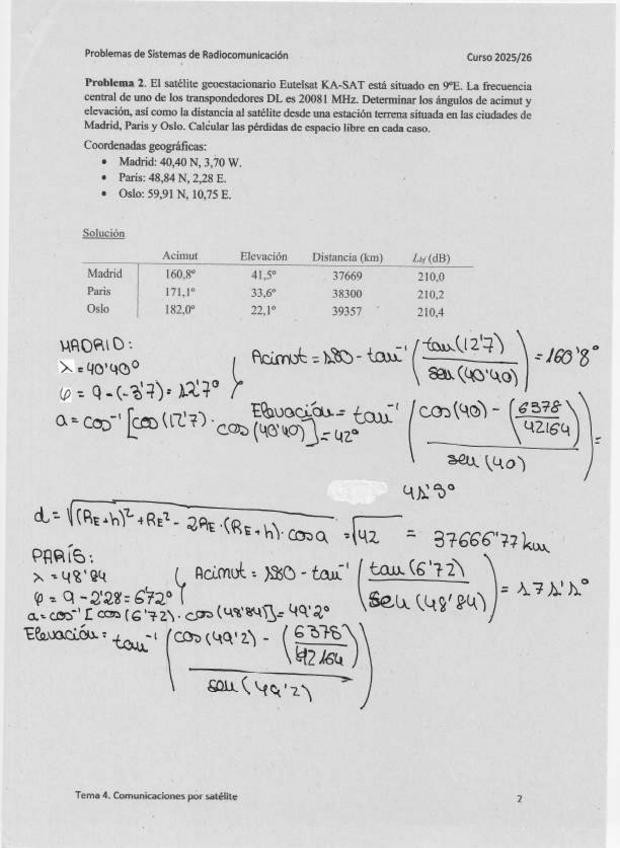 Problemas de Sistemas de Radiocomunicación Curso 2025/26
Problema 2. El satélite geoestacionario Eutelsat KA-SAT está situado en 9ºE. La frecuencia
central de uno de los transpondedores DL es 20081 MHz. Determinar los ángulos de acimut y
elevación, así como la distancia al satélite desde una estación terrena situada en las ciudades de
Madrid, Paris y Oslo. Calcular las pérdidas de espacio libre en cada caso.
Coordenadas geográficas:
• Madrid: 40,40 N, 3,70 W.
• París: 48,84 N, 2,28 E.
• Oslo: 59,91 N, 10,75 E.
Solución
Acimut Elevación Distancia (km) Lbf (dB)
Madrid 160,8º 41,5º 37669 210,0
Paris 171,1º 33,6º 38300 210,2
Oslo 182,0º 22,1º 39357 210,4
MADRID:
λ = 40'40º
φ = 9 - (-3'7) = 12'7º
Acimut = 180 - tan⁻¹ (tan(12'7) / sen(40'40)) = 160'8º
a = cos⁻¹ [cos(12'7) · cos(40'40)] = 42º
Elevación = tan⁻¹ (cos(40) - (6378 / 42164) / sen(40)) =
d = √(RE+h)² + RE² - 2RE·(RE+h)·cos a = √42 = 37666'77 km
PARÍS:
λ = 48'84
φ = 9 - 2'28 = 6'72º
Acimut = 180 - tan⁻¹ (tan(6'72) / sen(48'84)) = 171'1º
a = cos⁻¹ [cos(6'72) · cos(48'84)] = 49'2º
Elevación = tan⁻¹ (cos(49'2) - (6378 / 42164) / sen(49'2))
Tema 4. Comunicaciones por satélite 2